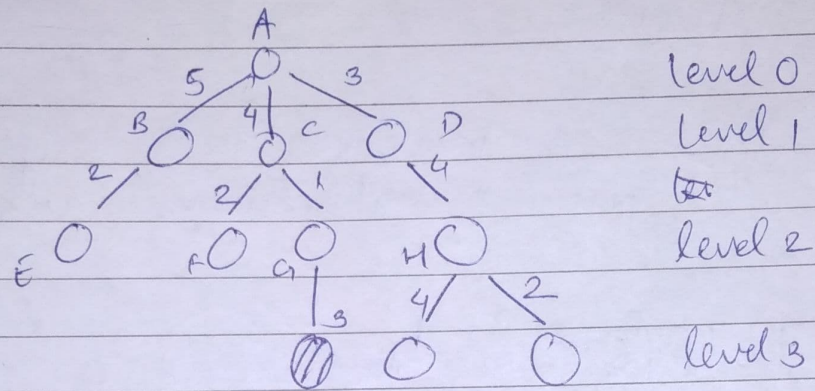 A
5 3 level 0
B 4 C D level 1
2 2 1 4
E F G H level 2
3 4 2
level 3